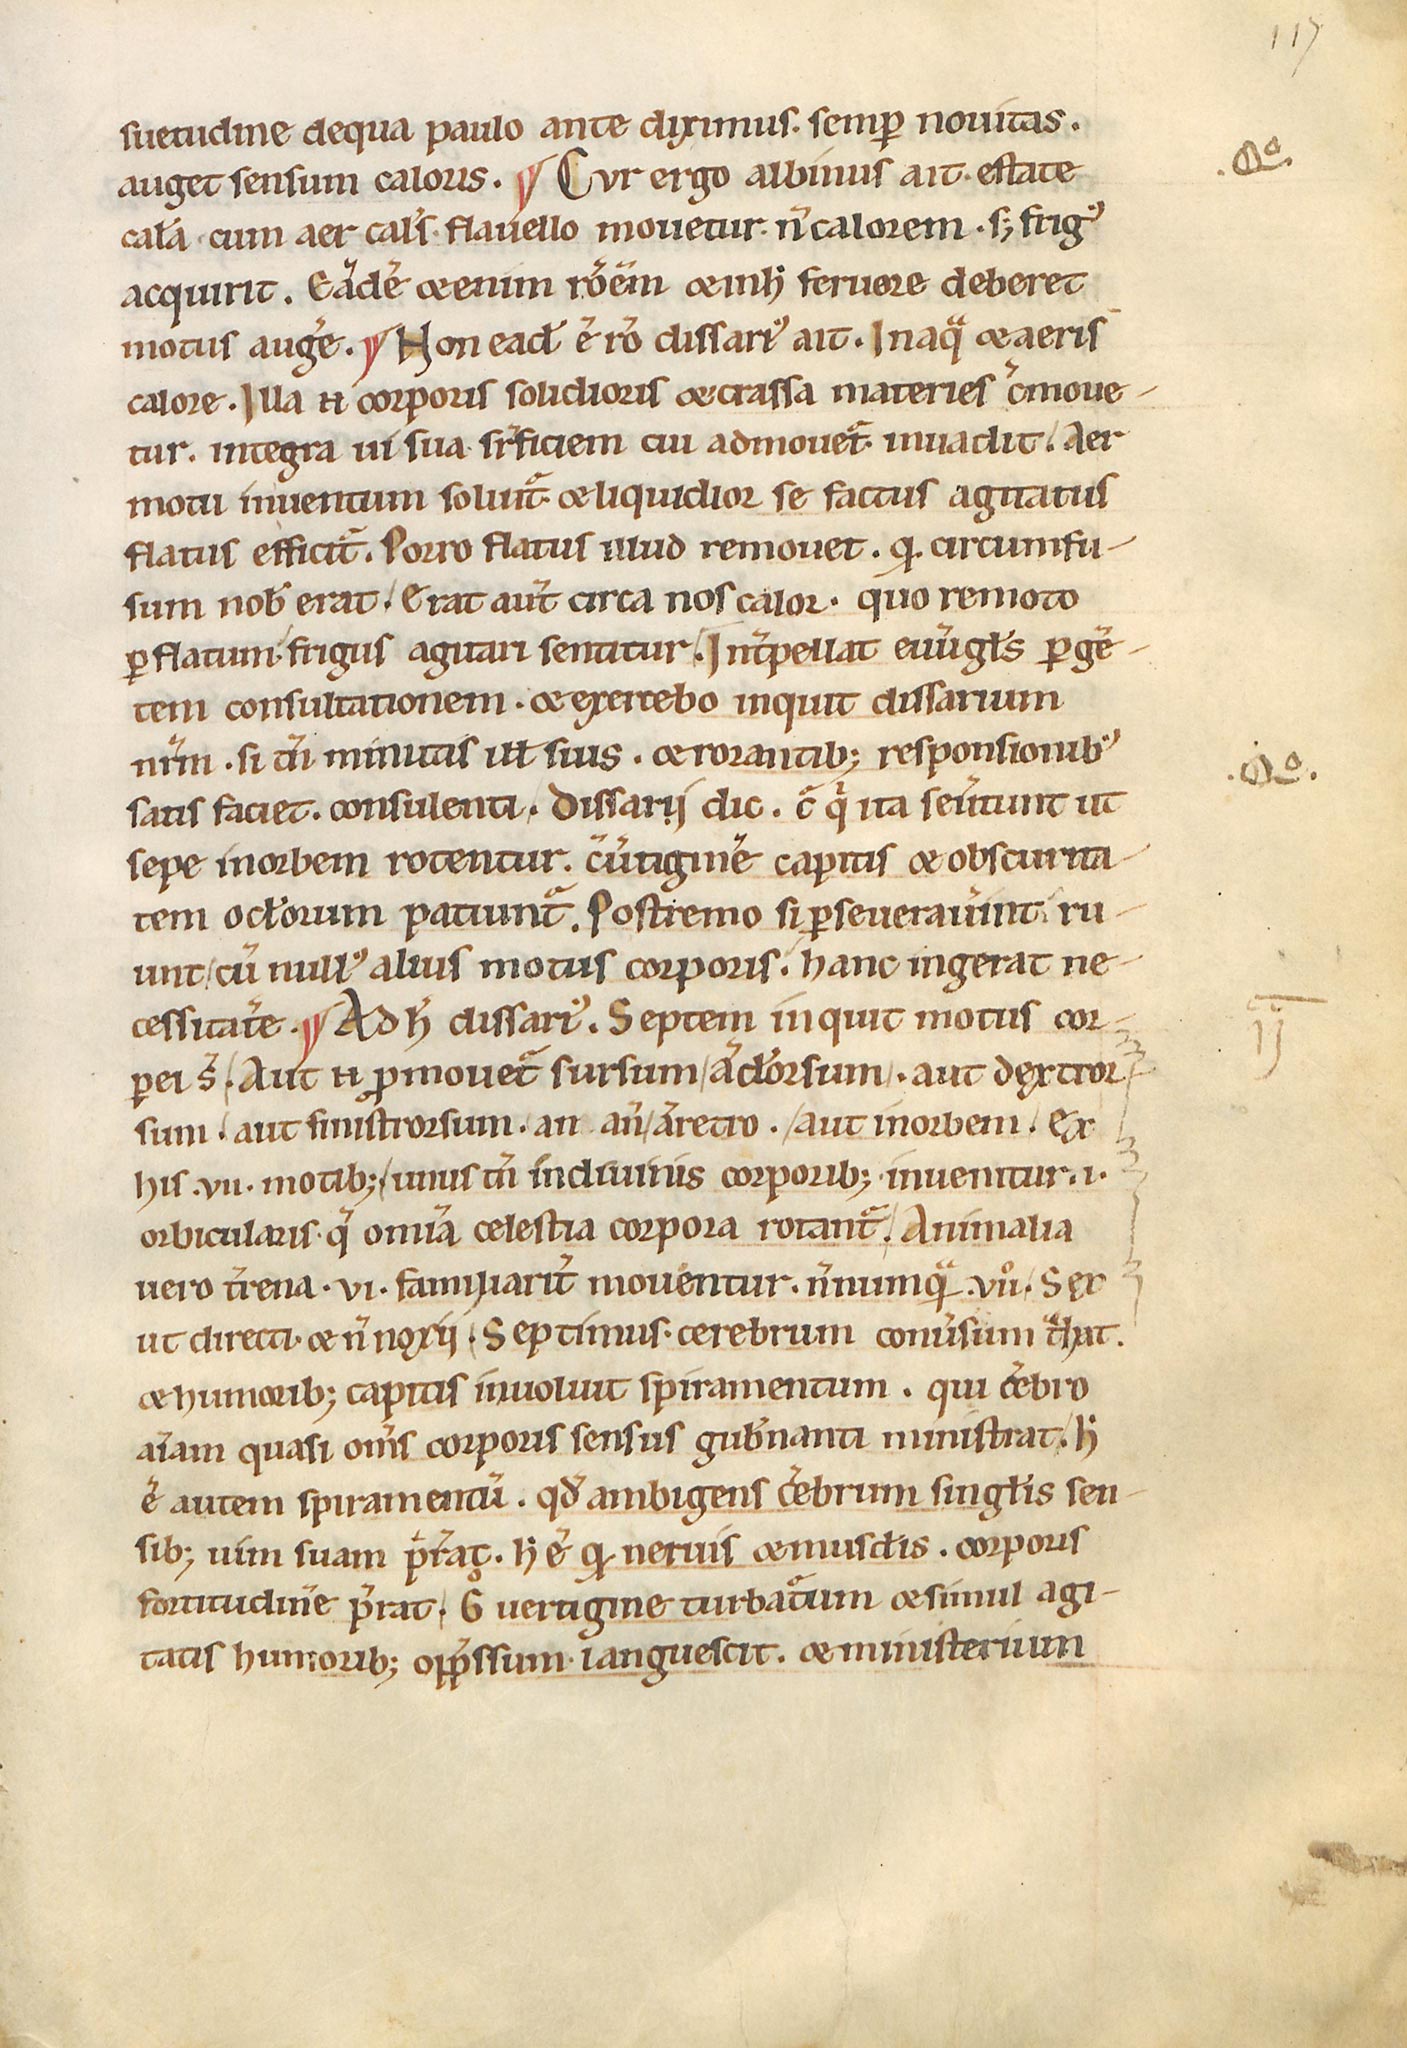 117
suetudine dequa paulo ante diximus. semꝑ nouitas.
auget sensum caloris. Cvr ergo albinus ait. estate
cal̄a cum aer cal̄s. flauello mouetur. n̄ calorem. s; frigꝰ
acquirit. Eādē & enim rōēm & inh̄ feruore deberet
motus augē. Non ead̄ ē rō dissariꝰ ait. In aqͣ & aeris
calore. Illa n̄ corporis solidioris & crassa materies c̄moue-
tur. integra ui sua sr̄ficiem cui admouet᷑ inuadit. Aer
motu inuentum soluit᷑ & liquidior se factus agitatus
flatus efficit᷑. Porro flatus illud remouet. qͦ circumfu-
sum nob̄ erat. Erat aut̄ circa nos calor. quo remoto
ꝑ flatum frigus agitari sentitur. Int̄pellat euūgl̄s ꝑgē-
tem consultationem. & exercebo inquit dissarium
nr̄m. si tn̄ minutis ill̄ suis. & rorantib; responsionibꝰ
satis faciet. consulenti. Dissarii dic. c̄ qͥ ita sen̄tunt ut
sepe inorbem rotentur. & c̄ūtiginē capitis & obscurita-
tem ocl̄orum patiunt᷑. Postremo si ꝑseuerau̅int. ru-
unt cū nullꝰ alius motus corporis. hanc ingerat ne-
cessitatē. Ad h̄ dissariꝰ. Septem inquit motus cor-
ꝑei s̄. Aut n̄ ꝓmouet᷑ sursum ā deorsum. aut dextror
sum. aut sinistrorsum. an an̄ ā retro. aut inorbem. Ex
his .vii. motib; unus tn̄ indiuinis corporib; inuenitur .i.
orbicularis. qͣ omīa celestia corpora rotant᷑. Animalia
vero t̄rena .vi. familiarit̄ mouentur. n̄numqͣ .viiͦ. Sex
ut directi & n̄ noxii. Septimus cerebrum conūsum tͣhat.
& humorib; capitis inuoluit spiramentum. qui c̄ebro
aīam quasi om̄s corporis sensus gub̄nanti ministrat. h̄
ē autem spiramentū. qd̄ ambigens c̄ebrum singl̄is sen-
sib; uim suam p̄rat. h̄ ē qͦ neruis & muscl̄is. corporis
fortitudinē p̄rat. G vertigine turbatum & simul agi-
tatis humorib; opp̄ssum languescit. & ministerium